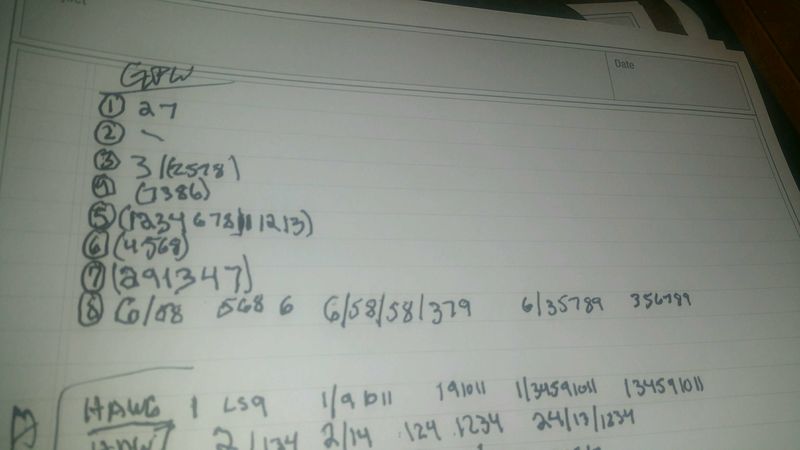 Date
GPW
① 27
② -
③ 3/(2578)
④ (7386)
⑤ (1234 678 11 1213)
⑥ (4568)
⑦ (291347)
⑧ 6/58 568 6 6/58/58/379 6/35789 356789
HAWG 1 LS9 1/91011 191011 1/34591011 134591011
2/134 2/14 124 1234 24/13/1234